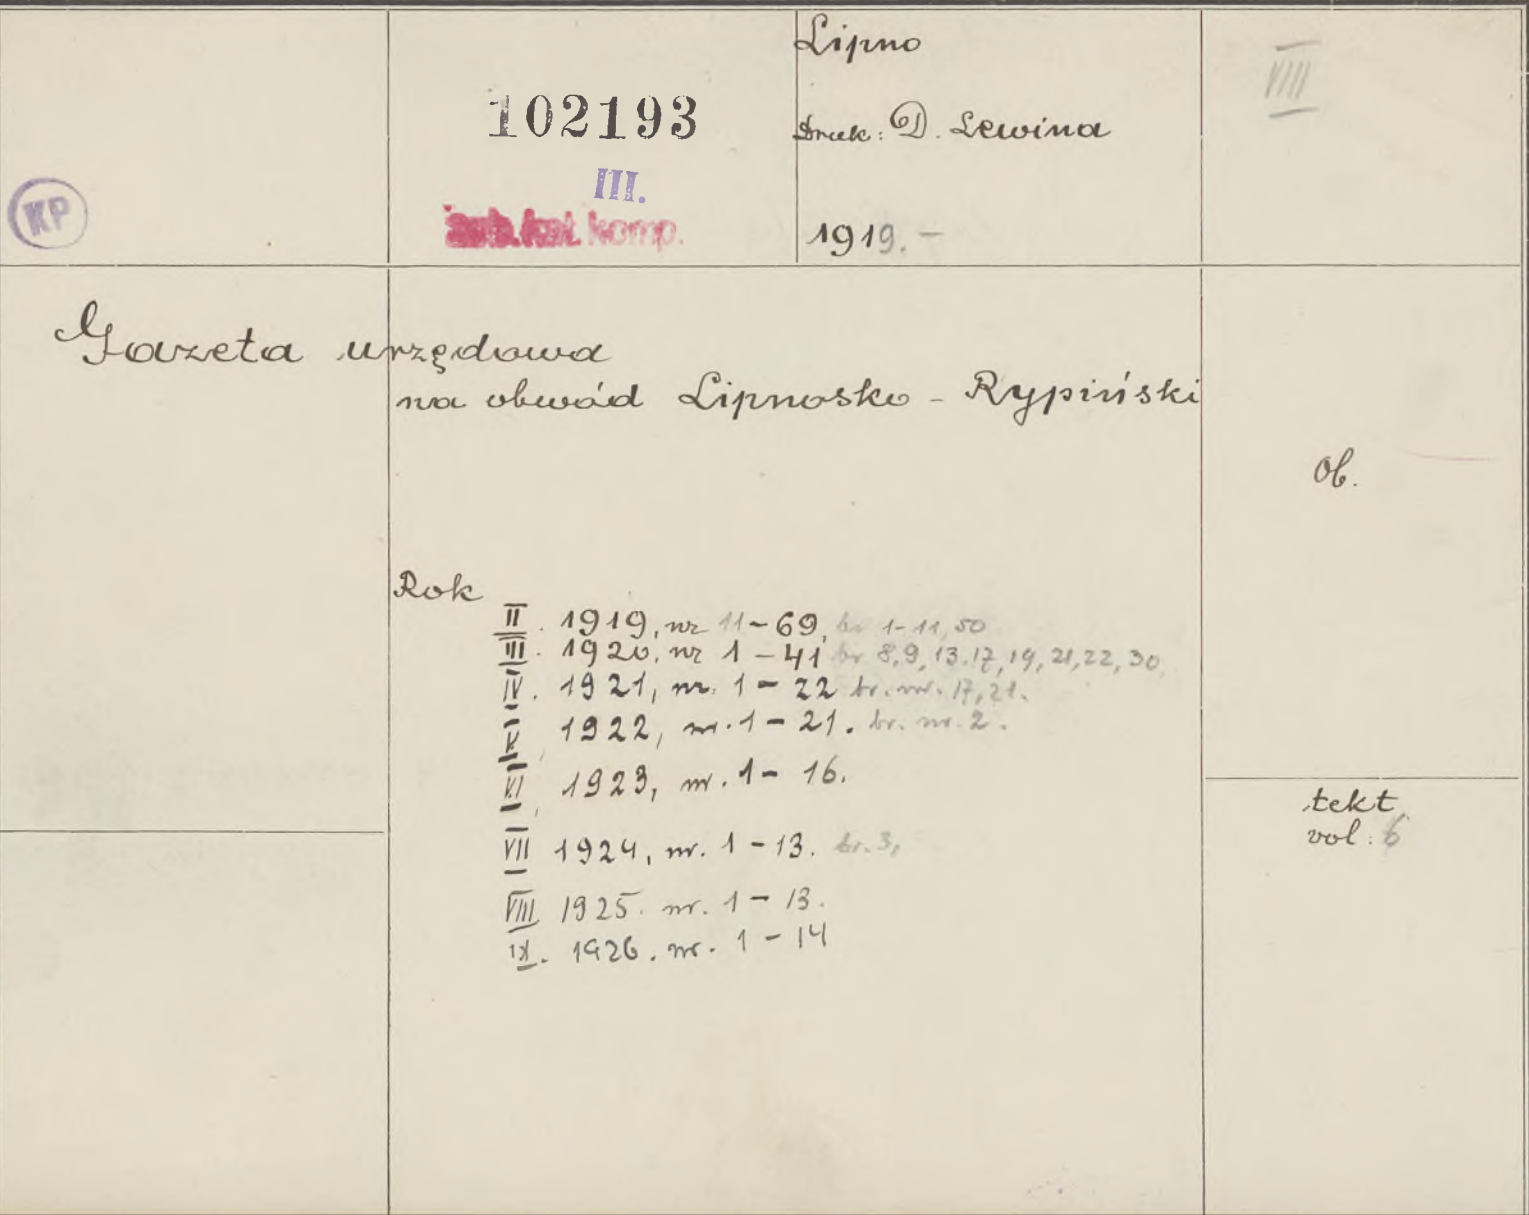 Lipno
VIII
102193
Druk: D. Lewina
III.
KP
kat. komp.
1919. -
Gazeta urzędowa
na obwód Lipnosko - Rypiński
Ob.
Rok
II. 1919, nr 11-69, br 1-11, 50
III. 1920, nr 1-41 br 8,9,13.17,19,21,22,30,
IV. 1921, nr. 1-22 br. nr. 17,21.
V 1922, nr. 1-21. br. nr. 2.
VI, 1923, nr. 1-16.
VII 1924, nr. 1-13. br. 3,
VIII 1925. nr. 1-13.
IX. 1926. nr. 1-14
tekt.
vol: 6